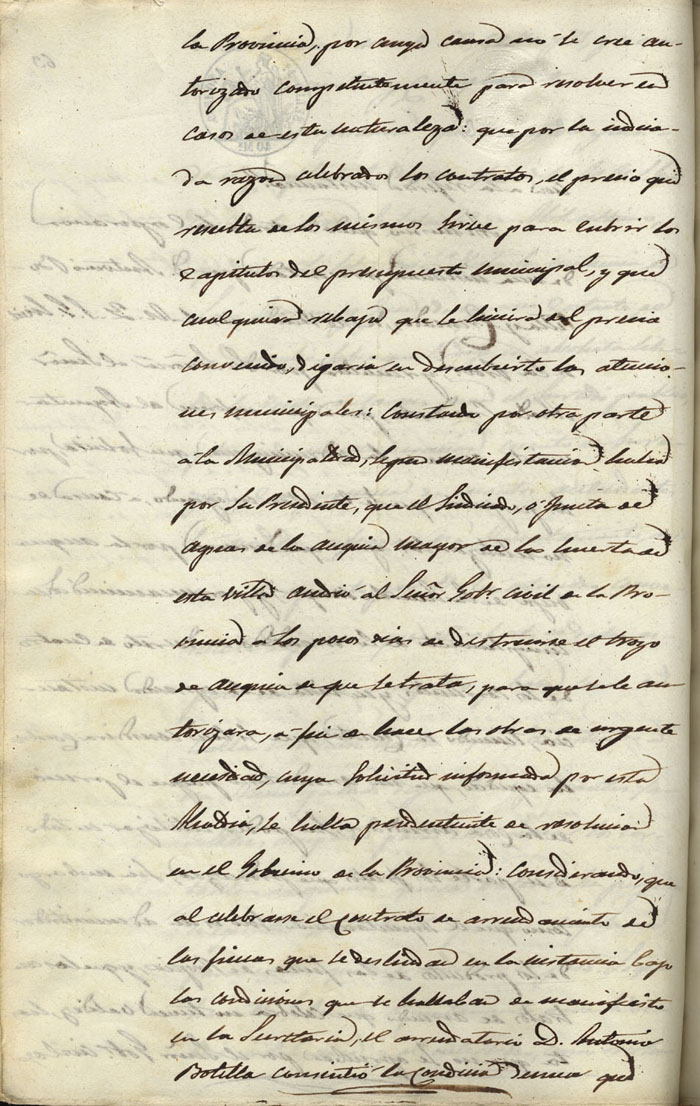 la Provincia, por cuya causa no se cree au-
torizado competentemente para resolver en
casos de esta naturaleza: que por la indica-
da razon celebrados los contratos, el precio que
resulta de los mismos sirve para cubrir los
Capitulos del presupuesto municipal, y que
cualquiera rebaja que se hiciera del precio
convenido, dejaria en descubierto las atencio-
nes municipales: Constando por otra parte
a la Municipalidad, segun manifestacion hecha
por su Presidente, que el Sindicado, o Junta de
aguas de la acequia mayor de la huerta de
esta villa acudió al Señor Gobr. Civil de la Pro-
vincia a los pocos dias de destruirse el trozo
de acequia de que se trata, para que se le au-
torizara, a fin de hacer las obras de urgente
necesidad, cuya solicitud informada por esta
Alcaldia, se halla pendiente de resolucion
en el Gobierno de la Provincia: Considerando, que
al celebrarse el Contrato de arrendamiento de
las fincas que se deslindan en la instancia bajo
las condiciones que se hallaban de manifiesto
en la Secretaria, el arrendatario D. Antonio
Botella consintió la Condicion que